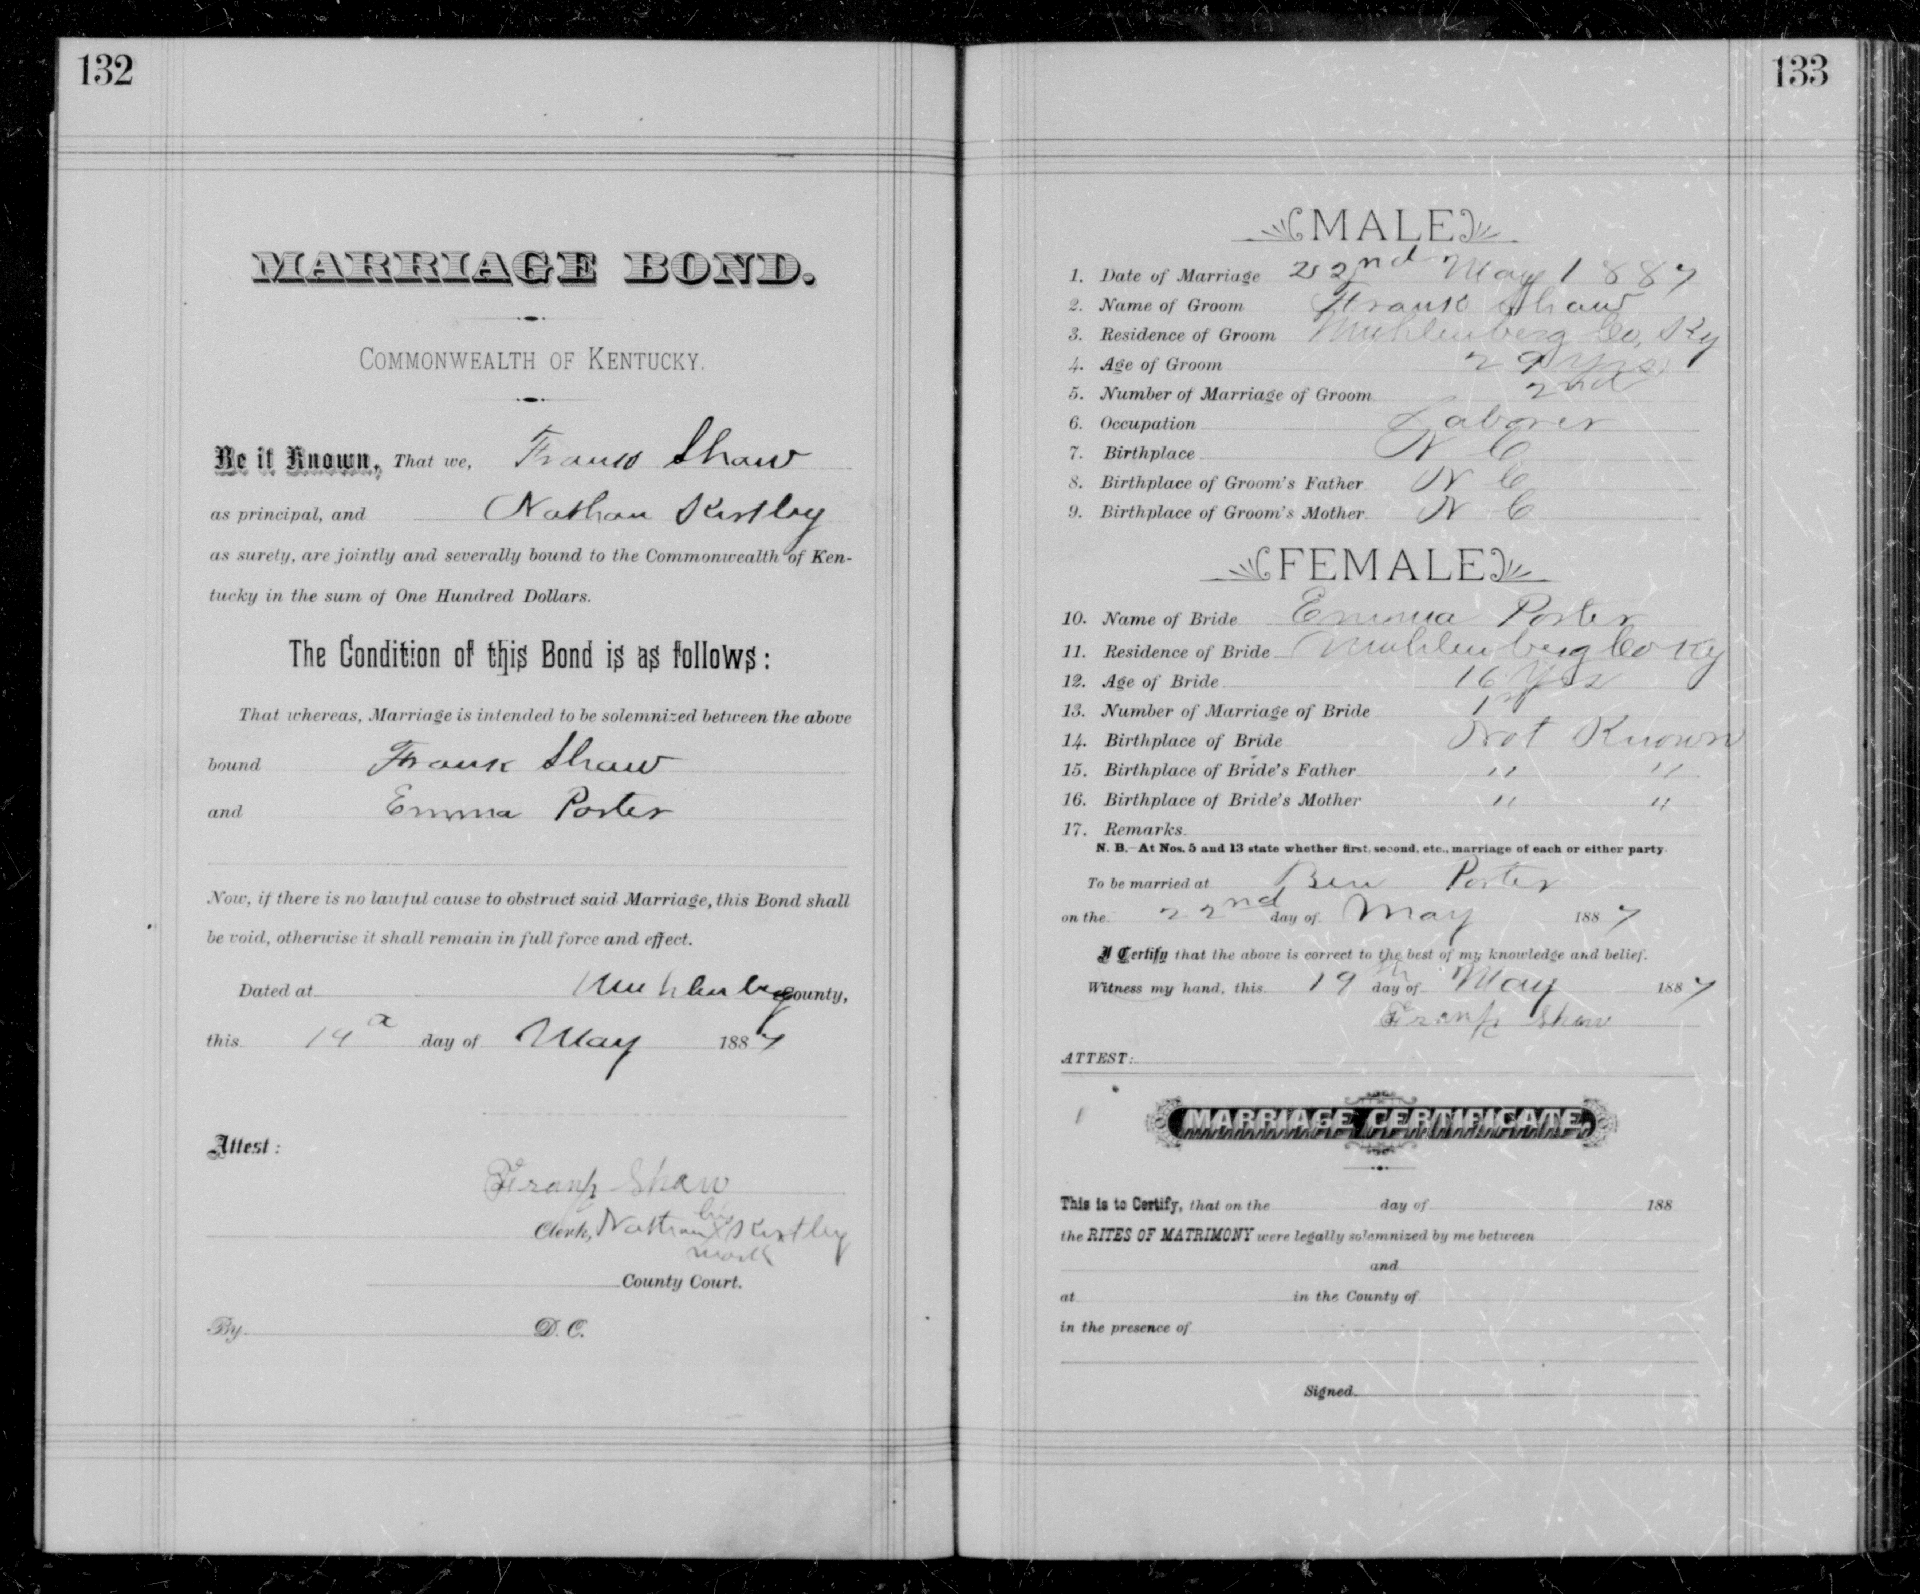 132
MARRIAGE BOND.
COMMONWEALTH OF KENTUCKY.
Be it Known, That we, Frank Shaw
as principal, and Nathan Kirtley
as surety, are jointly and severally bound to the Commonwealth of Ken-
tucky in the sum of One Hundred Dollars.
The Condition of this Bond is as follows:
That whereas, Marriage is intended to be solemnized between the above
bound Frank Shaw
and Emma Porter
Now, if there is no lawful cause to obstruct said Marriage, this Bond shall
be void, otherwise it shall remain in full force and effect.
Dated at Muhlenberg County,
this 19 day of May 1887
Attest:
Frank Shaw
his
Clerk, Nathan X Kirtley
mark
County Court.
By D. C.
133
MALE
1. Date of Marriage 22nd May 1887
2. Name of Groom Frank Shaw
3. Residence of Groom Muhlenberg Co, Ky
4. Age of Groom 29 yrs
5. Number of Marriage of Groom 2nd
6. Occupation Laborer
7. Birthplace N C
8. Birthplace of Groom's Father N C
9. Birthplace of Groom's Mother N C
FEMALE
10. Name of Bride Emma Porter
11. Residence of Bride Muhlenberg Co Ky
12. Age of Bride 16 yrs
13. Number of Marriage of Bride 1st
14. Birthplace of Bride Not Known
15. Birthplace of Bride's Father " "
16. Birthplace of Bride's Mother " "
17. Remarks
N. B.—At Nos. 5 and 13 state whether first, second, etc., marriage of each or either party.
To be married at Ben Porter
on the 22nd day of May 1887
I Certify that the above is correct to the best of my knowledge and belief.
Witness my hand, this 19th day of May 1887
Frank Shaw
ATTEST:
MARRIAGE CERTIFICATE
This is to Certify, that on the day of 188
the RITES OF MATRIMONY were legally solemnized by me between
and
at in the County of
in the presence of
Signed